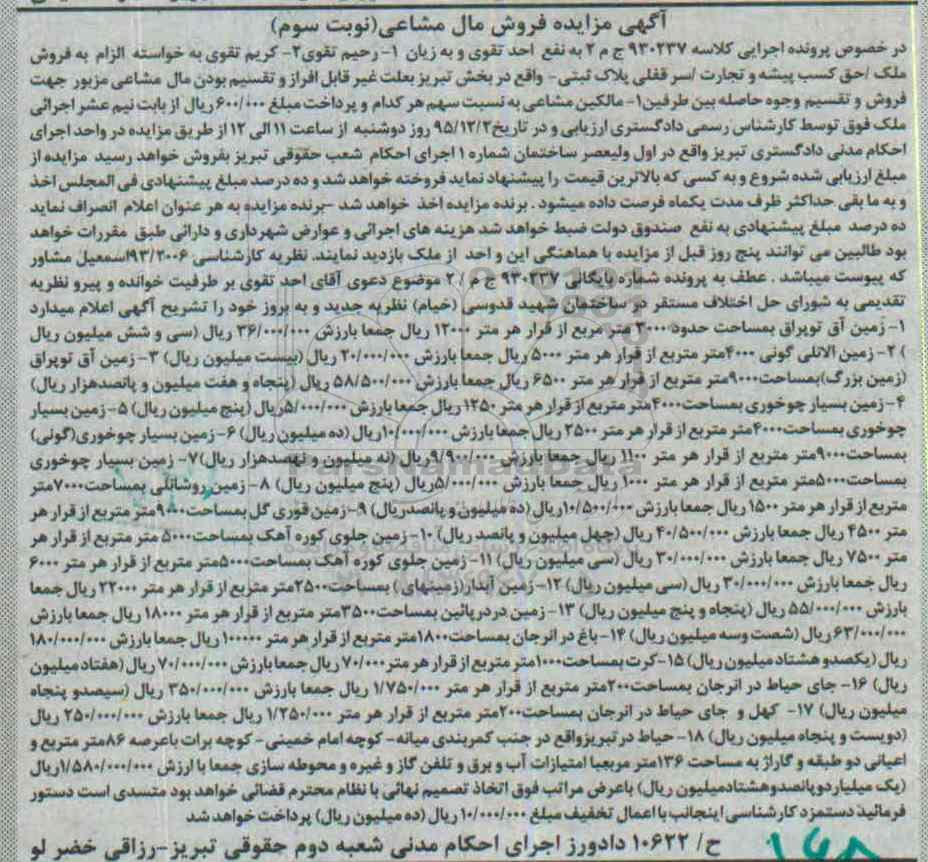 آگهی مزایده فروش مال مشاعی(نوبت سوم)
در خصوص پرونده اجرایی کلاسه ۹۳۰۲۳۷ ج م ۲ به نفع احد تقوی و به زیان ۱- رحیم تقوی۲- کریم تقوی به خواسته الزام به فروش
ملک /حق کسب پیشه و تجارت /سر قفلی پلاک ثبتی- واقع در بخش تبریز بعلت غیر قابل افراز و تقسیم بودن مال مشاعی مزبور جهت
فروش و تقسیم وجوه حاصله بین طرفین۱- مالکین مشاعی به نسبت سهم هر کدام و پرداخت مبلغ ۶۰۰/۰۰۰ ریال از بابت نیم عشر اجرائی
ملک فوق توسط کارشناس رسمی دادگستری ارزیابی و در تاریخ۹۵/۱۲/۲ روز دوشنبه از ساعت ۱۱ الی ۱۲ از طریق مزایده در واحد اجرای
احکام مدنی دادگستری تبریز واقع در اول ولیعصر ساختمان شماره ۱ اجرای احکام شعب حقوقی تبریز بفروش خواهد رسید مزایده از
مبلغ ارزیابی شده شروع و به کسی که بالاترین قیمت را پیشنهاد نماید فروخته خواهد شد و ده درصد مبلغ پیشنهادی فی المجلس اخذ
و به ما بقی حداکثر ظرف مدت یکماه فرصت داده میشود . برنده مزایده اخذ خواهد شد -برنده مزایده به هر عنوان اعلام انصراف نماید
ده درصد مبلغ پیشنهادی به نفع صندوق دولت ضبط خواهد شد هزینه های اجرائی و عوارض شهرداری و دارائی طبق مقررات خواهد
بود طالبین می توانند پنج روز قبل از مزایده با هماهنگی این و احد از ملک بازدید نمایند. نظریه کارشناسی ۹۳/۲۰۰۶اسمعیل مشاور
که پیوست میباشد . عطف به پرونده شماره بایگانی ۹۳۰۲۳۷ ج م /۲ موضوع دعوی آقای احد تقوی بر طرفیت خوانده و پیرو نظریه
تقدیمی به شورای حل اختلاف مستقر در ساختمان شهید قدوسی (خیام) نظریه جدید و به بروز خود را تشریح آگهی اعلام میدارد
۱- زمین آق توپراق بمساحت حدود ۳۰۰۰ متر مربع از قرار هر متر ۱۲۰۰۰ ریال جمعا بارزش ۳۶/۰۰۰/۰۰۰ ریال (سی و شش میلیون ریال
) ۲- زمین الانلی گونی ۴۰۰۰متر متربع از قرار هر متر ۵۰۰۰ ریال جمعا بارزش ۲۰/۰۰۰/۰۰۰ ریال (بیست میلیون ریال) ۳- زمین آق توپراق
(زمین بزرگ)بمساحت۹۰۰۰متر متربع از قرار هر متر ۶۵۰۰ ریال جمعا بارزش ۵۸/۵۰۰/۰۰۰ ریال (پنجاه و هفت میلیون و پانصدهزار ریال)
۴- زمین بسیار چوخوری بمساحت۴۰۰۰متر متربع از قرار هر متر ۱۲۵۰ ریال جمعا بارزش ۵/۰۰۰/۰۰۰ریال (پنج میلیون ریال) ۵- زمین بسیار
چوخوری بمساحت۴۰۰۰متر متربع از قرار هر متر ۲۵۰۰ ریال جمعا بارزش ۱۰/۰۰۰/۰۰۰ریال (ده میلیون ریال) ۶- زمین بسیار چوخوری(گونی)
بمساحت۹۰۰۰متر متربع از قرار هر متر ۱۱۰۰ ریال جمعا بارزش ۹/۹۰۰/۰۰۰ریال (نه میلیون و نهصدهزار ریال)۷- زمین بسیار چوخوری
بمساحت۵۰۰۰متر متربع از قرار هر متر ۱۰۰۰ ریال جمعا بارزش ۵/۰۰۰/۰۰۰ریال (پنج میلیون ریال) ۸- زمین روشانلی بمساحت۷۰۰۰متر
متربع از قرار هر متر ۱۵۰۰ ریال جمعا بارزش ۱۰/۵۰۰/۰۰۰ریال (ده میلیون و پانصدریال) ۹- زمین قوری گل بمساحت۹۰۰۰متر متربع از قرار هر
متر ۴۵۰۰ ریال جمعا بارزش ۴۰/۵۰۰/۰۰۰ ریال (چهل میلیون و پانصد ریال) ۱۰- زمین جلوی کوره آهک بمساحت۵۰۰۰ متر متربع از قرار هر
متر ۷۵۰۰ ریال جمعا بارزش ۳۰/۰۰۰/۰۰۰ ریال (سی میلیون ریال) ۱۱- زمین جلوی کوره آهک بمساحت۵۰۰۰متر متربع از قرار هر متر ۶۰۰۰
ریال جمعا بارزش ۳۰/۰۰۰/۰۰۰ ریال (سی میلیون ریال) ۱۲- زمین آبدار(زمینهای) بمساحت۲۵۰۰متر متربع از قرار هر متر ۲۲۰۰۰ ریال جمعا
بارزش ۵۵/۰۰۰/۰۰۰ ریال (پنجاه و پنج میلیون ریال) ۱۳- زمین در درپائین بمساحت۳۵۰۰متر متربع از قرار هر متر ۱۸۰۰۰ ریال جمعا بارزش
۶۳/۰۰۰/۰۰۰ ریال (شصت وسه میلیون ریال) ۱۴- باغ در انرجان بمساحت۱۸۰۰متر متربع از قرار هر متر ۱۰۰۰۰۰ ریال جمعا بارزش ۱۸۰/۰۰۰/۰۰۰
ریال (یکصدو هشتاد میلیون ریال) ۱۵-کرت بمساحت۱۰۰۰متر متربع از قرار هر متر ۷۰/۰۰۰ ریال جمعا بارزش ۷۰/۰۰۰/۰۰۰ ریال (هفتاد میلیون
ریال) ۱۶- جای حیاط در انرجان بمساحت۲۰۰متر متربع از قرار هر متر ۱/۷۵۰/۰۰۰ ریال جمعا بارزش ۳۵۰/۰۰۰/۰۰۰ ریال (سیصدو پنجاه
میلیون ریال) ۱۷- کهل و جای حیاط در انرجان بمساحت۲۰۰متر متربع از قرار هر متر ۱/۲۵۰/۰۰۰ ریال جمعا بارزش ۲۵۰/۰۰۰/۰۰۰ ریال
(دویست و پنجاه میلیون ریال) ۱۸- حیاط در تبریزواقع در جنب کمربندی میانه- کوچه امام خمینی- کوچه برات باعرصه ۸۶متر متربع و
اعیانی دو طبقه و گاراژ به مساحت ۱۳۶متر مربعبا امتیازات آب و برق و تلفن گاز و غیره و محوطه سازی جمعا با ارزش ۱/۵۸۰/۰۰۰/۰۰۰ریال
(یک میلیاردوپانصدوهشتادمیلیون ریال) باعرض مراتب فوق اتخاذ تصمیم نهائی با نظام محترم قضائی خواهد بود متسدی است دستور
فرمائید دستمزد کارشناسی اینجانب با اعمال تخفیف مبلغ ۱۰/۰۰۰/۰۰۰ ریال (ده میلیون ریال) پرداخت خواهد شد
ح/ ۱۰۶۲۲ دادورز اجرای احکام مدنی شعبه دوم حقوقی تبریز-رزاقی خضر لو